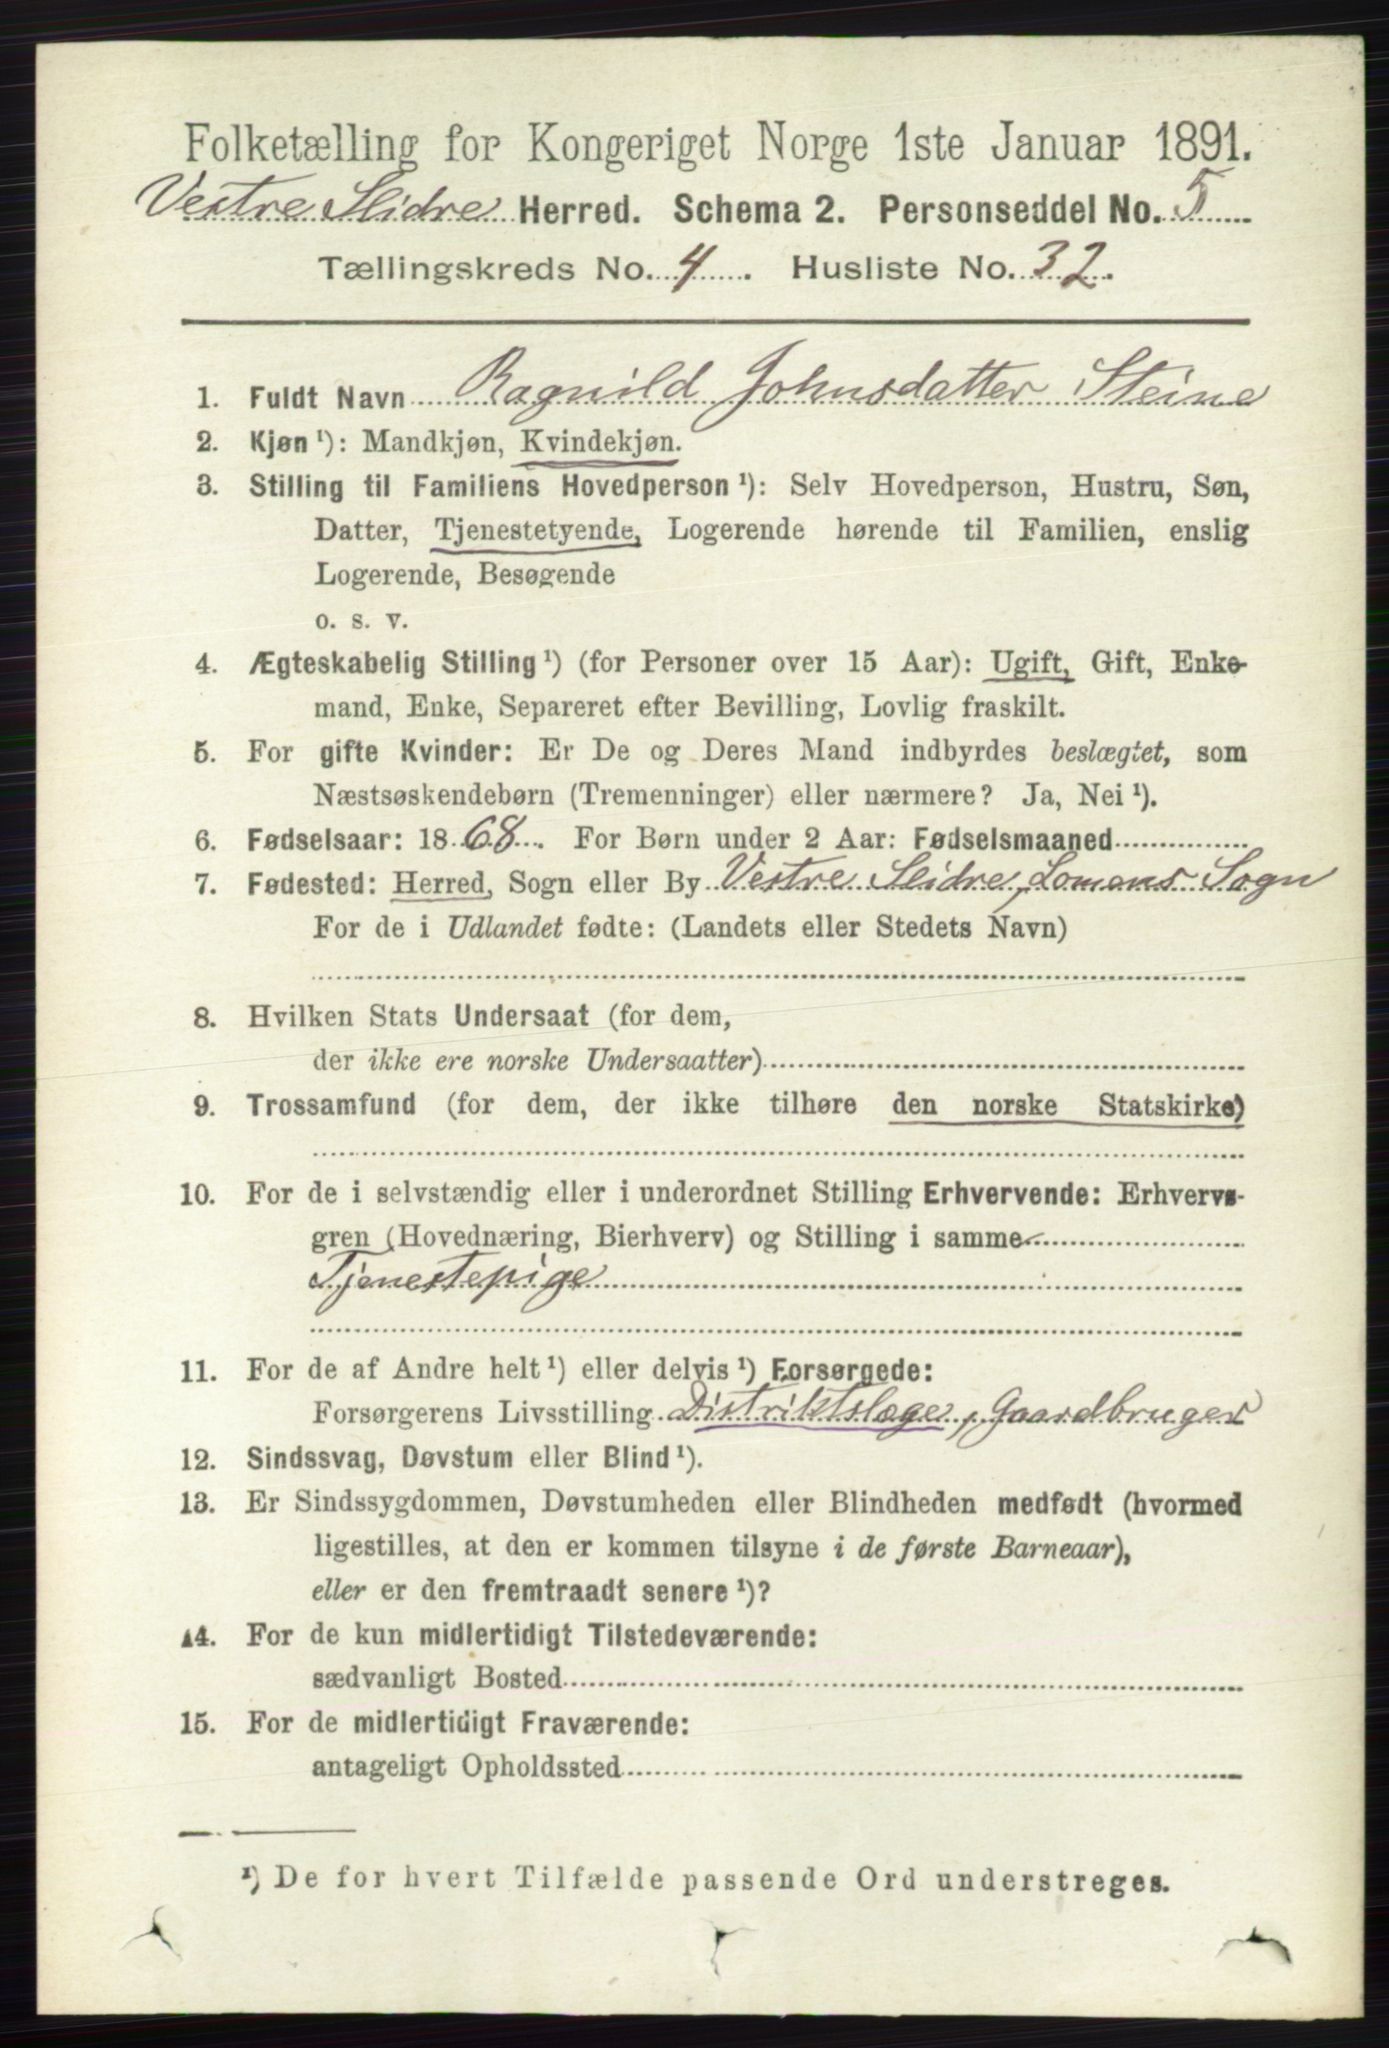 Folketælling for Kongeriget Norge 1ste Januar 1891.
Vestre Slidre Herred. Schema 2. Personseddel No. 5
Tællingskreds No. 4. Husliste No. 32.
1. Fuldt Navn Ragnild Johnsdatter Steine
2. Kjøn ¹): Mandkjøn, Kvindekjøn.
3. Stilling til Familiens Hovedperson ¹): Selv Hovedperson, Hustru, Søn,
Datter, Tjenestetyende, Logerende hørende til Familien, enslig
Logerende, Besøgende
o. s. v.
4. Ægteskabelig Stilling ¹) (for Personer over 15 Aar): Ugift, Gift, Enke-
mand, Enke, Separeret efter Bevilling, Lovlig fraskilt.
5. For gifte Kvinder: Er De og Deres Mand indbyrdes beslægtet, som
Næstsøskendebørn (Tremenninger) eller nærmere? Ja, Nei ¹).
6. Fødselsaar: 1868. For Børn under 2 Aar: Fødselsmaaned
7. Fødested: Herred, Sogn eller By Vestre Slidre, Lomens Sogn
For de i Udlandet fødte: (Landets eller Stedets Navn)
8. Hvilken Stats Undersaat (for dem,
der ikke ere norske Undersaatter)
9. Trossamfund (for dem, der ikke tilhøre den norske Statskirke)
10. For de i selvstændig eller i underordnet Stilling Erhvervende: Erhvervs-
gren (Hovednæring, Bierhverv) og Stilling i samme
Tjenestepige
11. For de af Andre helt ¹) eller delvis ¹) Forsørgede:
Forsørgerens Livsstilling Distriktslæge, Gaardbruger
12. Sindssvag, Døvstum eller Blind ¹).
13. Er Sindssygdommen, Døvstumheden eller Blindheden medfødt (hvormed
ligestilles, at den er kommen tilsyne i de første Barneaar),
eller er den fremtraadt senere ¹)?
14. For de kun midlertidigt Tilstedeværende:
sædvanligt Bosted
15. For de midlertidigt Fraværende:
antageligt Opholdssted
¹) De for hvert Tilfælde passende Ord understreges.